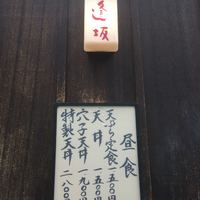 逢坂
昼食
天ぷら定食 一五〇〇
天丼 一五〇〇
穴子天丼 一九〇〇
特製天丼 二八〇〇